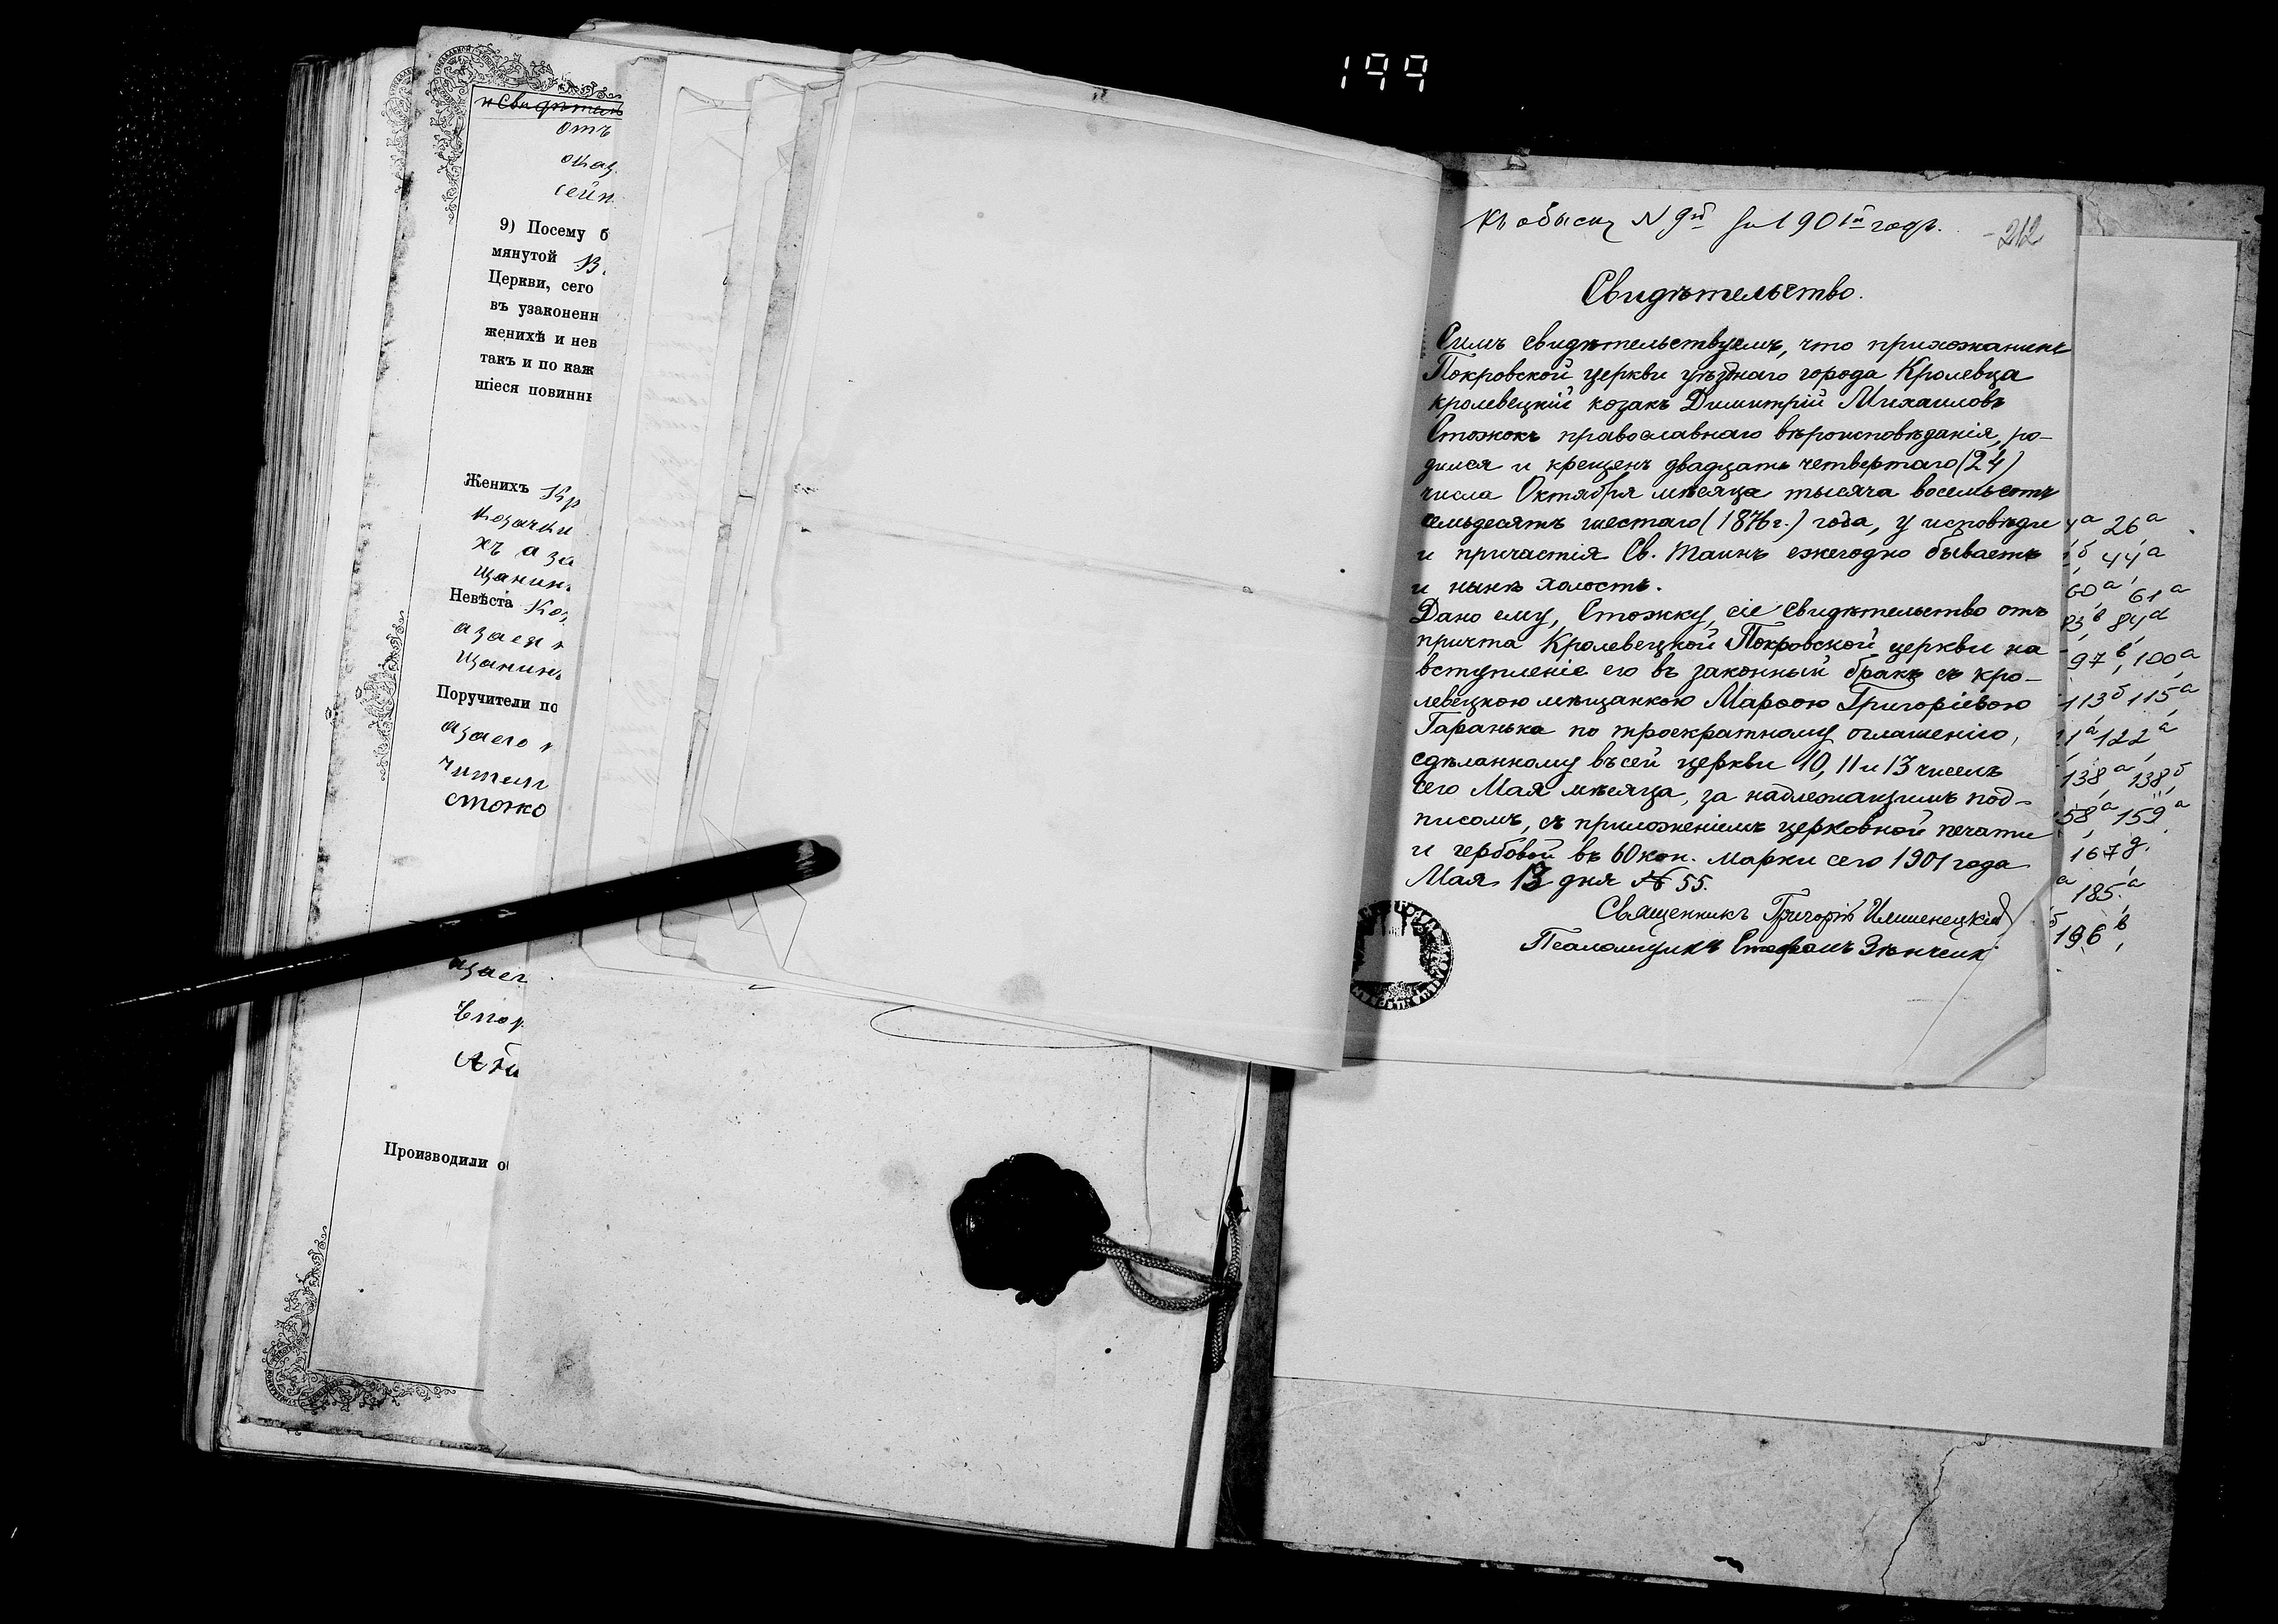 199
и Свидѣтель
отъ
оказ
сейп
9) Посему б
мянутой В
Церкви, сего
въ узаконенн
женихѣ и нев
такъ и по каж
шіеся повинн
Женихъ Кр
козачки
хъ а за
щанин
Невѣста Коз
азаея н
щанин
Поручители по
азаего н
чител
стоко
азаег
Производили о
Къ обыску N 9й за 1901й годъ.
212
Свидѣтельство.
Симъ свидѣтельствуемъ, что прихожанинъ
Покровской церкви уѣзднаго города Кролевца
кролевецкій козакъ Димитрій Михаиловъ
Стожокъ православнаго вѣроисповѣданія, ро-
дился и крещенъ двадцать четвертаго (24)
числа Октября мѣсяца тысяча восемьсотъ
семьдесятъ шестаго (1876 г.) года, у исповѣди
и причастія Св. Таинъ ежегодно бываетъ
и нынѣ холостъ.
Дано ему, Стожку, сіе свидѣтельство отъ
причта Кролевецкой Покровской церкви на
вступленіе его въ законный бракъ съ кро-
левецкою мѣщанкою Марѳою Григоріевою
Гаранька по троекратному оглашенію,
сдѣланному въ сей церкви 10, 11 и 13 чиселъ
сего Мая мѣсяца, за надлежащимъ под-
писомъ, съ приложеніемъ церковной печати
и гербовой въ 60 коп. марки сего 1901 года
Мая 13 дня № 55.
Священникъ Григорій
Псаломщикъ Стефанъ Зѣнченк
4а 26а
1б, 44а
60а, 61а
83в 84а
97в, 100а
113б 115а
1а 122а
138а, 138б
58а, 159а
167д.
а 185а
б 196в,